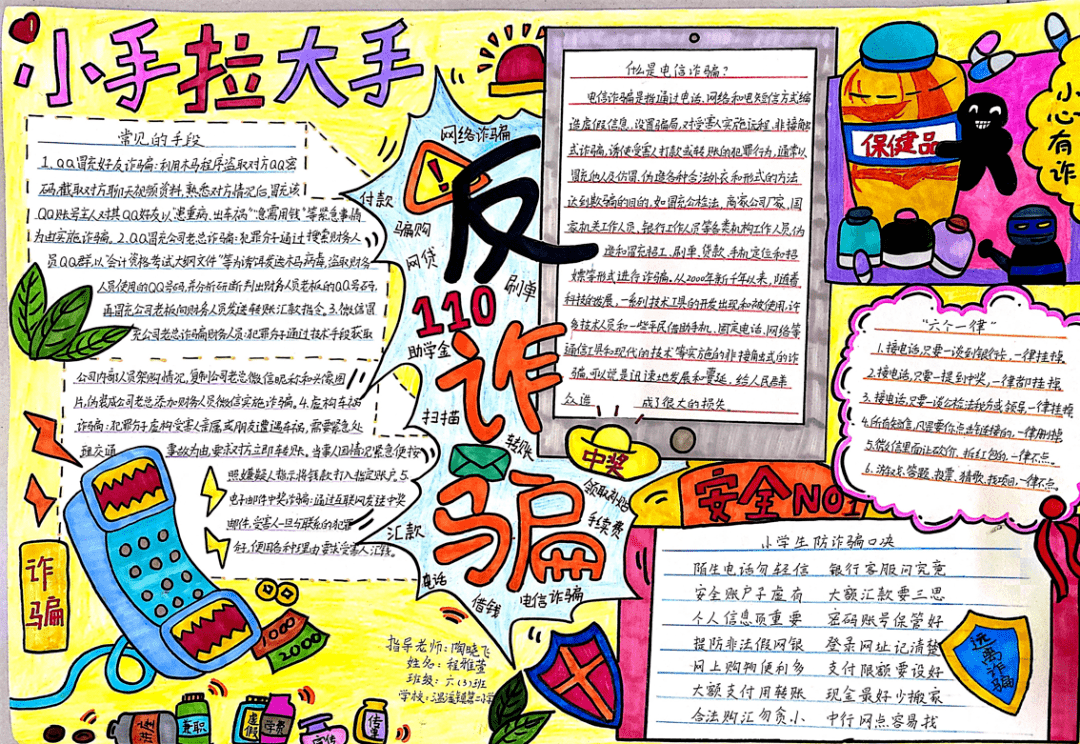 小手拉大手
常见的手段
1.QQ冒充好友诈骗:利用木马程序盗取对方QQ密
码,截取对方聊天视频资料,熟悉对方情况后,冒充该
QQ账号主人对其QQ好友以"患重病、出车祸""急需用钱"等紧急事情
为由实施诈骗。2.QQ冒充公司老总诈骗:犯罪分子通过搜索财务人
员QQ群,以"会计资格考试大纲文件"等为诱饵发送木马病毒,盗取财务
人员使用的QQ号码,并分析研判出财务人员老板的QQ号码,
再冒充公司老板向财务人员发送转账汇款指令。3.微信冒
充公司老总诈骗财务人员:犯罪分子通过技术手段获取
公司内部人员架构情况,复制公司老总微信昵称和头像图
片,伪装成公司老总添加财务人员微信实施诈骗。4.虚构车祸
诈骗:犯罪分子虚构受害人亲属或朋友遭遇车祸,需要紧急处
理交通 事故为由,要求对方立即转账。当事人因情况紧急便按
照嫌疑人指示将钱款打入指定账户。5.
电子邮件中奖诈骗:通过互联网发送中奖
邮件,受害人一旦与联系的犯罪
使用各种理由要求受害人汇钱。
诈骗
网络诈骗
付款
骗购
网贷
刷单
110
助学金
反诈骗
扫描
转账
领取补贴
手续费
汇款
电话
借钱
电信诈骗
中奖
指导老师:陶晓飞
姓名:程雅萱
班级:六(3)班
学校:温溪镇第二小学
什么是电信诈骗?
电信诈骗是指通过电话、网络和短信方式编
造虚假信息,设置骗局,对受害人实施远程、非接触
式诈骗,诱使受害人打款或转账的犯罪行为,通常以
冒充他人及仿冒、伪造各种合法外衣和形式的方法
达到欺骗的目的,如冒充公检法、商家公司厂家、国
家机关工作人员、银行工作人员等各类机构工作人员,伪
造和冒充招工、刷单、贷款、手机定位和招
嫖等形式进行诈骗。从2000年新千年以来,随着
科技的发展,一系列技术工具的开发出现和被使用,许
多技术人员和一些平民借助手机、固定电话、网络等
通信工具和现代的技术等实施的非接触式的诈
骗可以说是迅速地发展和蔓延,给人民群
众造 成了很大的损失。
保健品
小心有诈
"六个一律"
1.接电话,只要一谈到银行卡,一律挂掉
2.接电话,只要一提到中奖,一律都挂掉
3.接电话,只要一谈公检法税务或领导一律挂掉
4.所有短信,凡是要你点击链接的,一律删掉
5.微信里面让砍价、拆红包的,一律不点。
6.游戏、答题、投票、猜歌、找项目,一律不点。
安全NO1
小学生防诈骗口决
陌生电话勿轻信 银行客服问究竟
安全账户子虚有 大额汇款要三思
个人信息顶重要 密码账号保管好
提防非法假网银 登录网址记清楚
网上购物便利多 支付限额要设好
大额支付用转账 现金最好少搬家
合法购汇勿贪小 中行网点容易找
远离诈骗
1000
2000
兼职
虚假
学费
传单